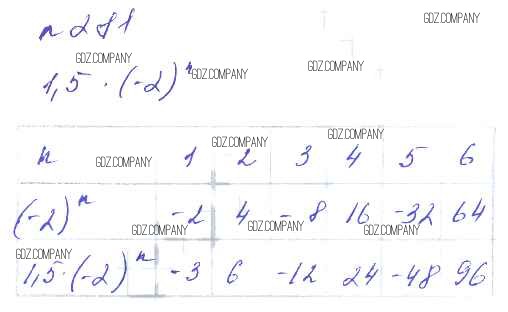 n 281 GDZ.COMPANY
GDZ.COMPANY
1,5 · (-2)ⁿ GDZ.COMPANY GDZ.COMPANY
GDZ.COMPANY GDZ.COMPANY
n GDZ.COMPANY 1 2 3 4 5 6
(-2)ⁿ -2 4 -8 16 -32 64
GDZ.COMPANY GDZ.COMPANY GDZ.COMPANY
GDZ.COMPANY
1,5·(-2)ⁿ -3 6 -12 24 -48 96